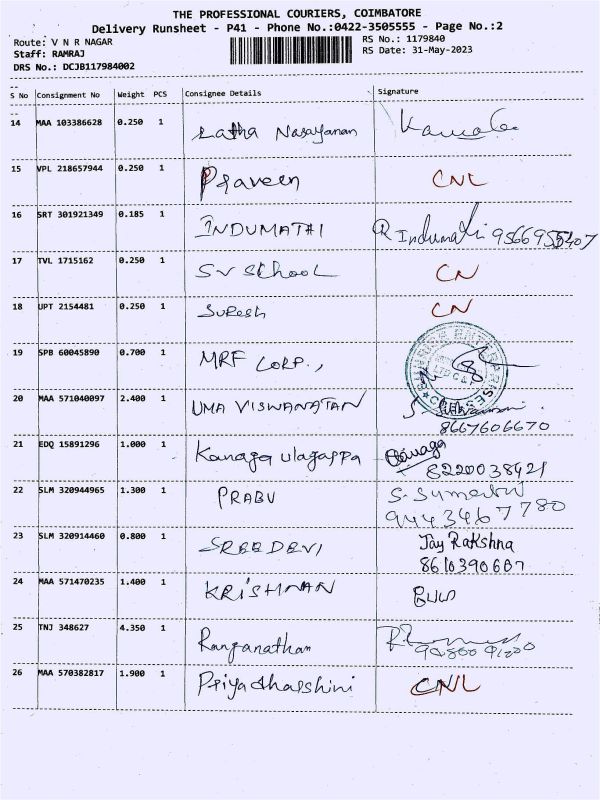 THE PROFESSIONAL COURIERS, COIMBATORE
Delivery Runsheet - P41 - Phone No.:0422-3505555 - Page No.:2
Route: V N R NAGAR RS No.: 1179840
Staff: RAMRAJ RS Date: 31-May-2023
DRS No.: DCJB117984002
S No Consignment No Weight PCS Consignee Details Signature
14 MAA 103386628 0.250 1 Latha Narayanan
15 VPL 218657944 0.250 1 Praveen CNL
16 SRT 301921349 0.185 1 INDUMATHI R Indumathi 9566955407
17 TVL 1715162 0.250 1 SV School CN
18 UPT 2154481 0.250 1 Suresh CN
19 SPB 60045890 0.700 1 MRF CORP.,
20 MAA 571040097 2.400 1 UMA VISWANATAN
8667606670
21 EDQ 15891296 1.000 1 Kanaga ulagappa Kanaga
8220038421
22 SLM 320944965 1.300 1 PRABU
9443467780
23 SLM 320914460 0.800 1 SREEDEVI Jay Rakshna
24 MAA 571470235 1.400 1 KRISHNAN
25 TNJ 348627 4.350 1 Ranganathan
26 MAA 570382817 1.900 1 Priyadharshini CNL